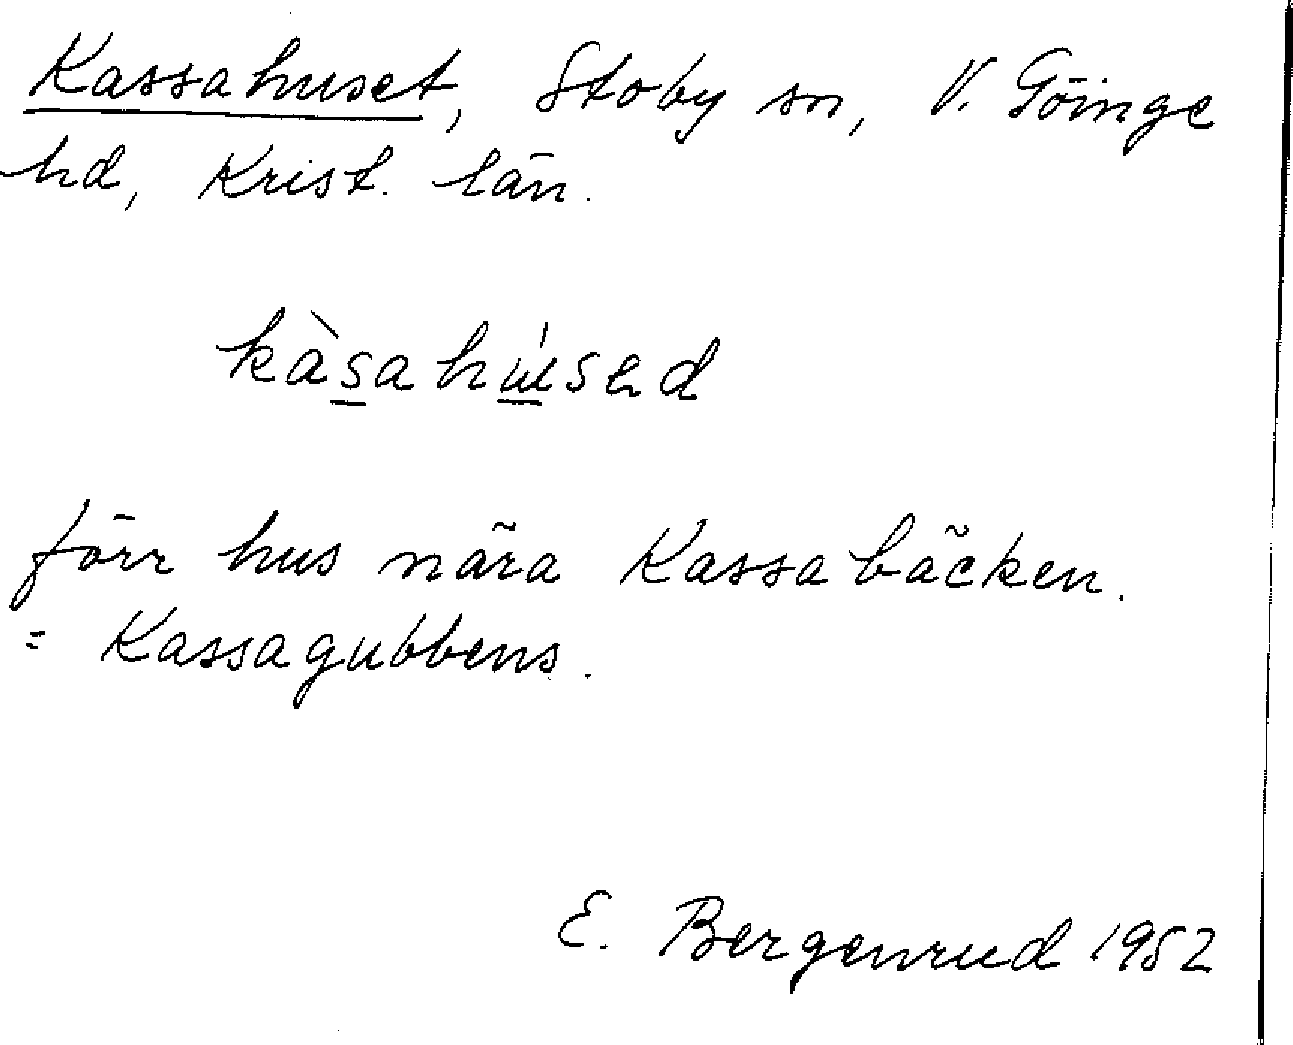 Kassahuset, Stoby sn, V. Göinge
hd, Krist. län.
kàsahúsed
förr hus nära Kassabäcken.
= Kassagubbens.
E. Bergenrud 1952